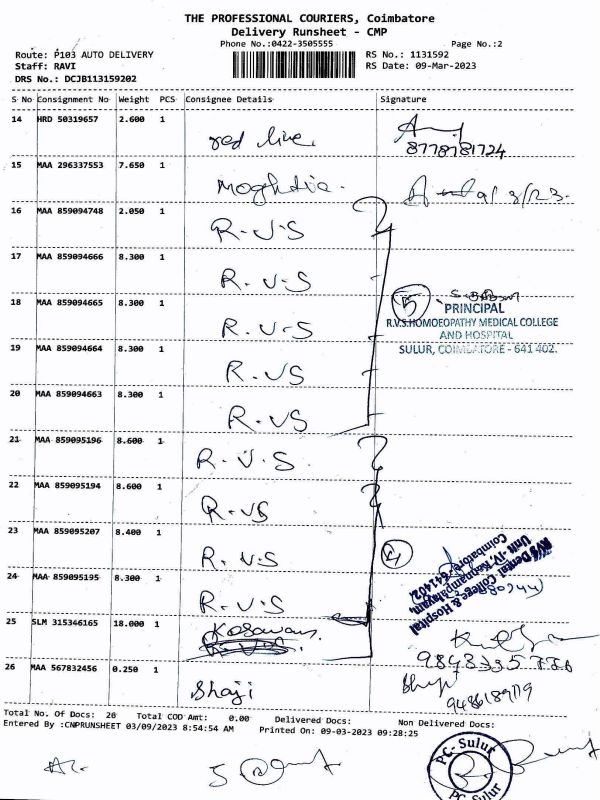 THE PROFESSIONAL COURIERS, Coimbatore
Delivery Runsheet - CMP
Phone No.:0422-3505555 Page No.:2
Route: P103 AUTO DELIVERY RS No.: 1131592
Staff: RAVI RS Date: 09-Mar-2023
DRS No.: DCJB113159202
S No Consignment No Weight PCS Consignee Details Signature
14 HRD 50319657 2.600 1 red line
8778781724
15 MAA 296337553 7.650 1
16 MAA 859094748 2.050 1 R.V.S
17 MAA 859094666 8.300 1 R.V.S
18 MAA 859094665 8.300 1 R.V.S
5
PRINCIPAL
R.V.S.HOMOEOPATHY MEDICAL COLLEGE
AND HOSPITAL
SULUR, COIMBATORE - 641 402.
19 MAA 859094664 8.300 1 R.VS
20 MAA 859094663 8.300 1 R.VS
21 MAA 859095196 8.600 1 R.V.S.
22 MAA 859095194 8.600 1 R.VS
23 MAA 859095207 8.400 1 R.V.S
4
RVS Dental College & Hospital
Unit-IV, Kannampalayam,
Coimbatore-641402
24 MAA 859095195 8.300 1 R.V.S
25 SLM 315346165 18.000 1
26 MAA 567832456 0.250 1 Shaji
Total No. Of Docs: 26 Total COD Amt: 0.00 Delivered Docs: Non Delivered Docs:
Entered By :CNPRUNSHEET 03/09/2023 8:54:54 AM Printed On: 09-03-2023 09:28:25
PC-Sulur
PC Sulur